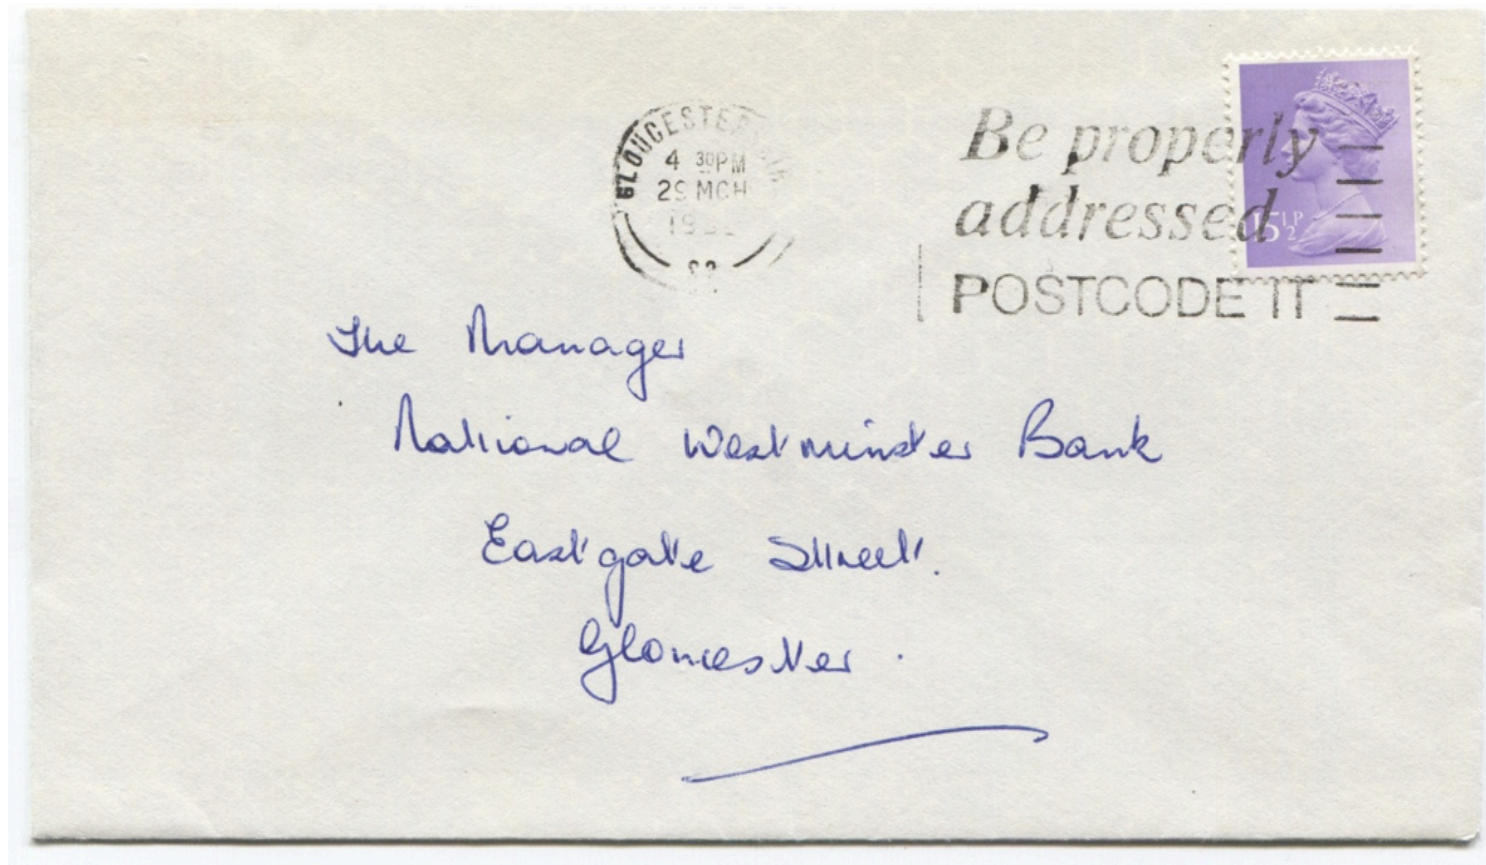 GLOUCESTERSHIRE
4 30PM
29 MCH
Be properly
addressed
POSTCODE IT
15½P
The Manager
National Westminster Bank
Eastgate Street.
Gloucester.